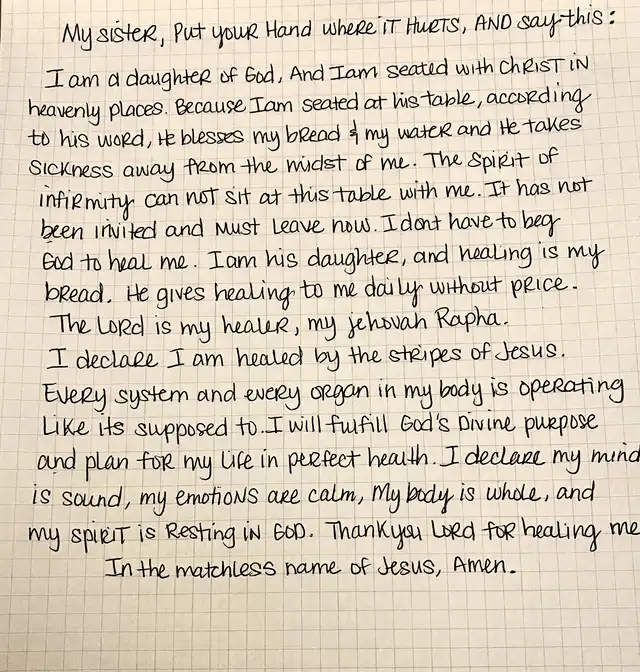 My sister, Put your Hand where it Hurts, And say this:
I am a daughter of God, And I am seated with Christ in
heavenly places. Because I am seated at his table, according
to his word, He blesses my bread & my water and He takes
sickness away from the midst of me. The Spirit of
infirmity can not sit at this table with me. It has not
been invited and must leave now. I dont have to beg
God to heal me. I am his daughter, and healing is my
bread. He gives healing to me daily without price.
The Lord is my healer, my jehovah Rapha.
I declare I am healed by the stripes of Jesus.
Every system and every organ in my body is operating
like its supposed to. I will fulfill God's Divine purpose
and plan for my life in perfect health. I declare my mind
is sound, my emotions are calm, My body is whole, and
my spirit is Resting in God. Thank you Lord for healing me
In the matchless name of Jesus, Amen.